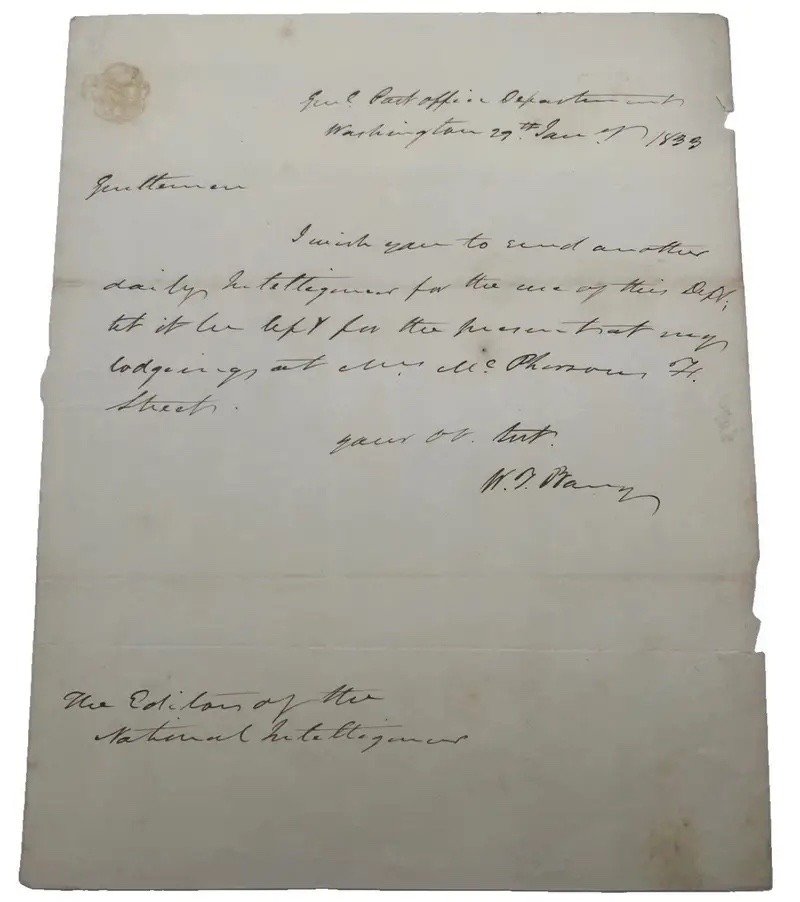 Genl Post office Department
Washington 29th Jany 1833
Gentlemen
I wish you to send another
daily Intelligencer for the use of this Dept;
let it be left for the present at my
lodgings at Mrs McPhersons F.
Street.
your Ob. Servt.
W. T. Barry
The Editors of the
National Intelligencer